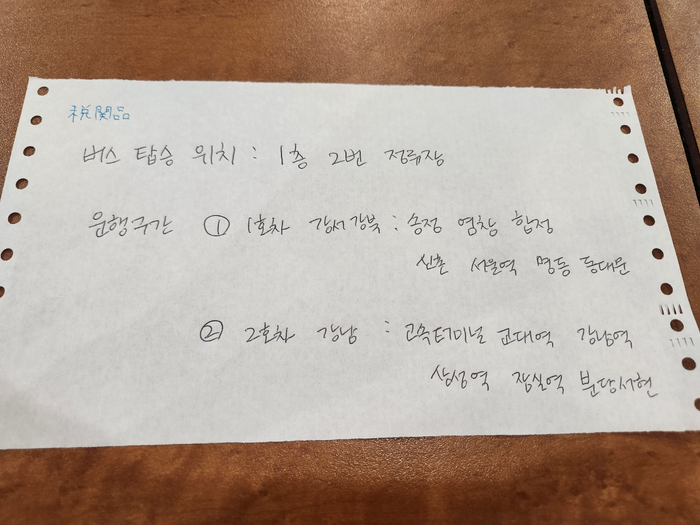 税関品
버스 탑승 위치 : 1층 2번 정류장
운행구간 ① 1회차 강서강북 : 송정 염창 합정
신촌 서울역 명동 동대문
② 2회차 강남 : 고속터미널 교대역 강남역
삼성역 잠실역 분당서현